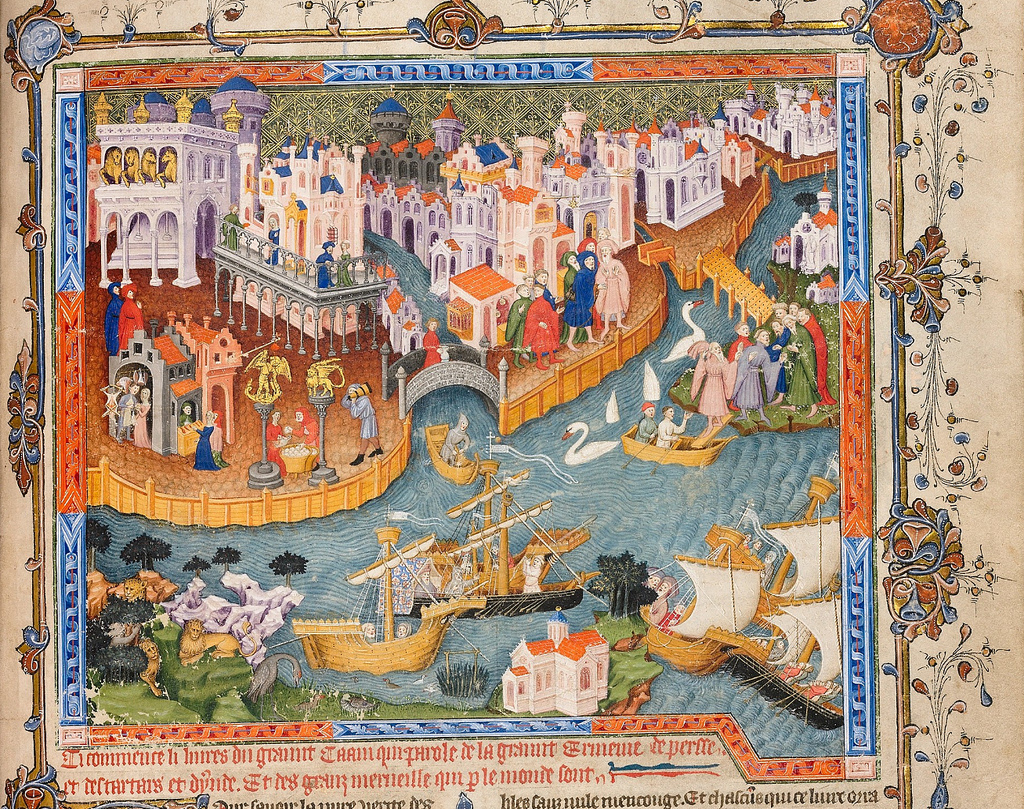 Ci commence li liures du graunt Caam qui parole de la graunt Ermenie de persie
et des tartars et dynde. Et des granz merueille qui p le monde sont
Pour sauoir la pure verite des
bles sanz nule menconge. Et chascuns qui ce liure orra